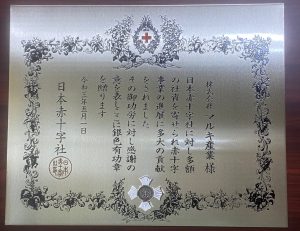 株式会社 マルキ産業 様
日本赤十字社に対し多額
の社資を寄せられ赤十字
事業の進展に多大の貢献
をされました
その御功労に対し感謝の
意を表しここに銀色有功章
を贈ります
令和三年五月一日
日本赤十字社